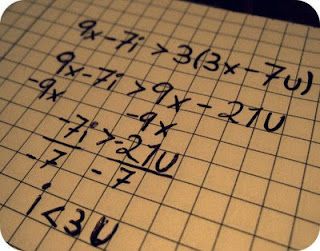 9x-7i > 3(3x-7u)
9x-7i > 9x - 21u
-9x -9x
-7i > -21u
-7 -7
i < 3 u